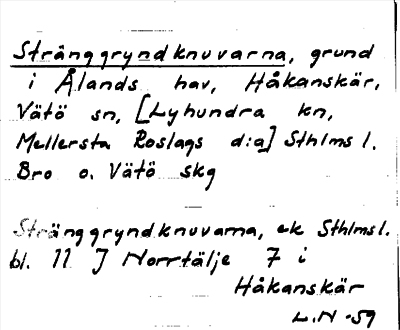 Stränggryndknuvarna, grund
i Ålands hav, Håkanskär,
Vätö sn, [Lyhundra kn,
Mellersta Roslags d:a] Sthlms l.
Bro o. Vätö skg
Stränggryndknuvarna, ek Sthlmsl.
bl. 11 J Norrtälje 7 i
Håkanskär
L.N -59